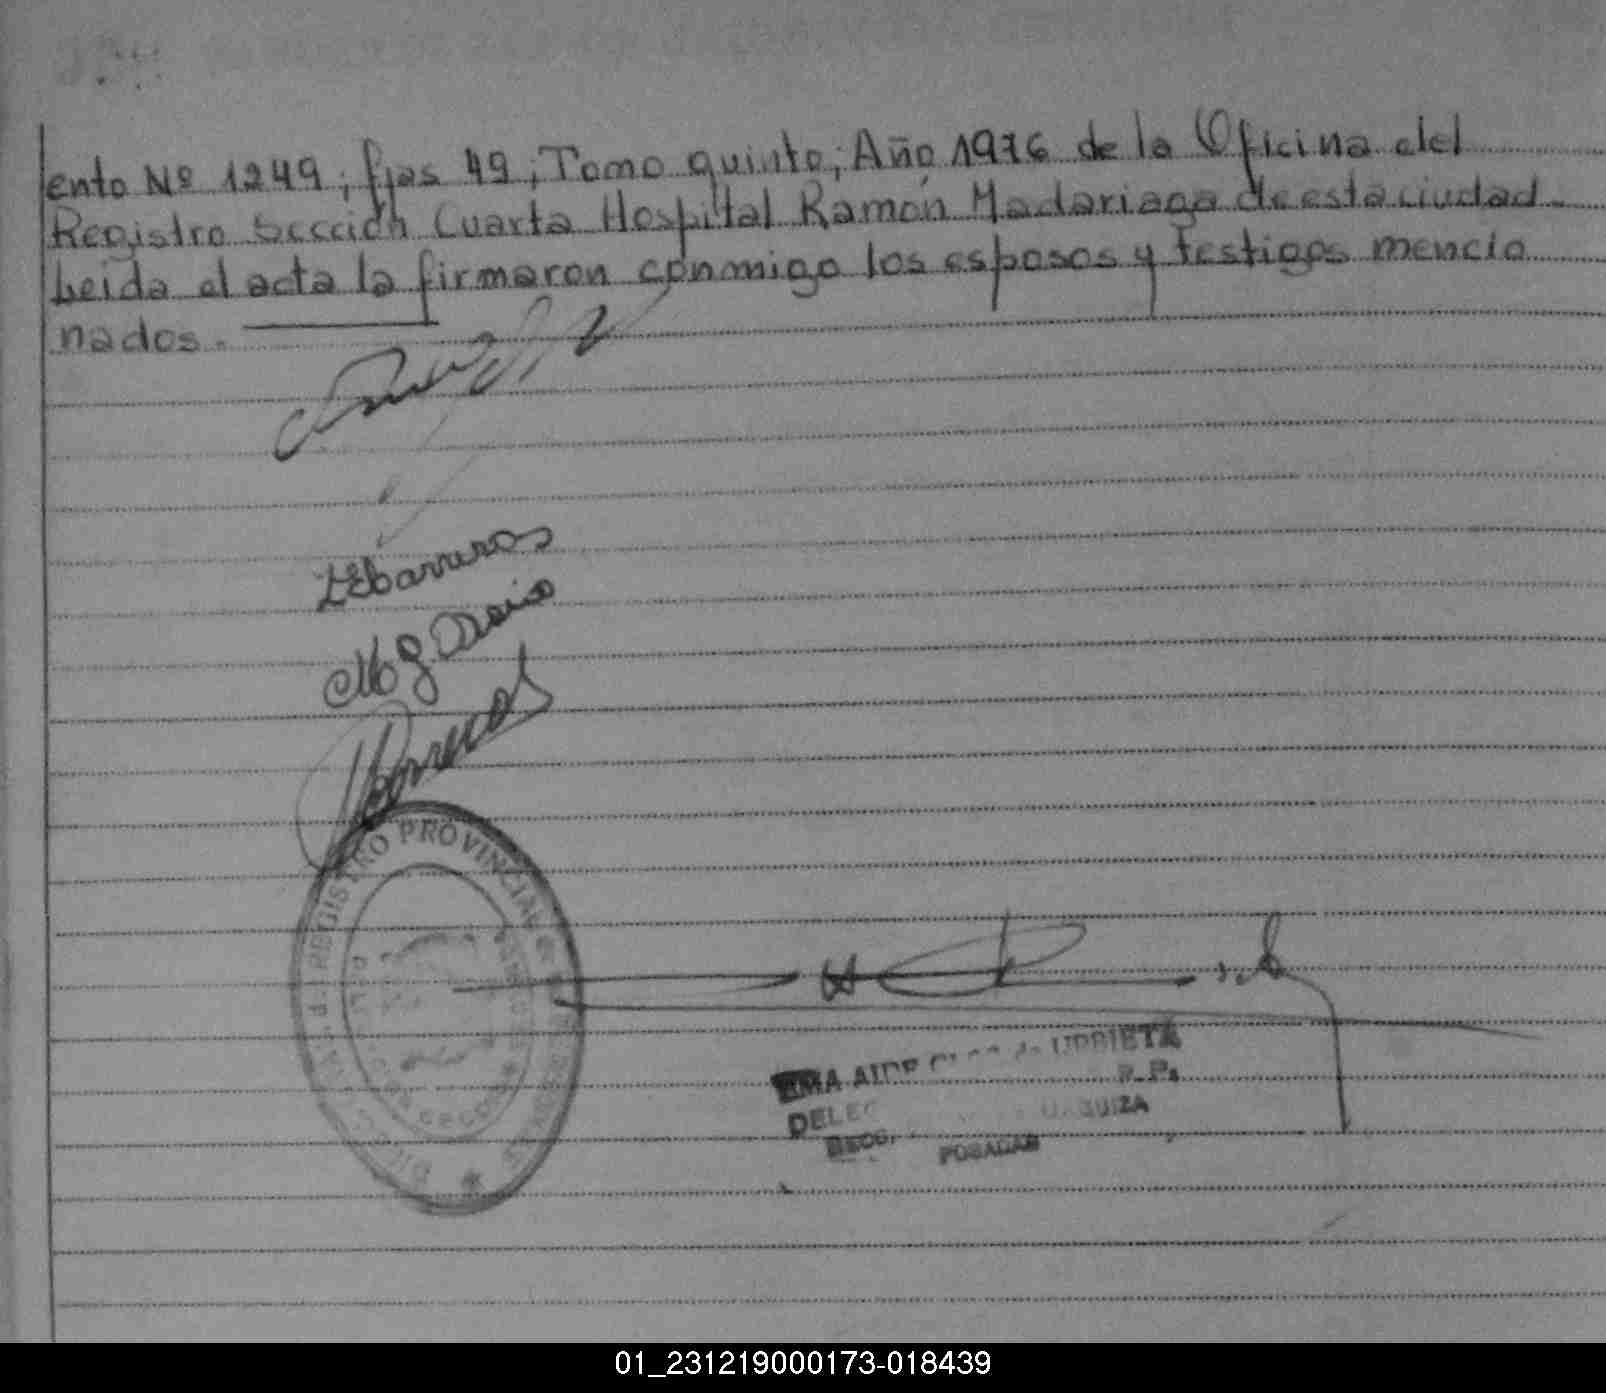 ento Nº 1249; fjas 49; Tomo quinto; Año 1976 de la Oficina del
Registro Sección Cuarta Hospital Ramón Madariaga de esta ciudad.
Leida el acta la firmaron conmigo los esposos y testigos mencio
nados.
REGISTRO PROVINCIAL
URBIETA
URQUIZA
POSADAS
01_231219000173-018439